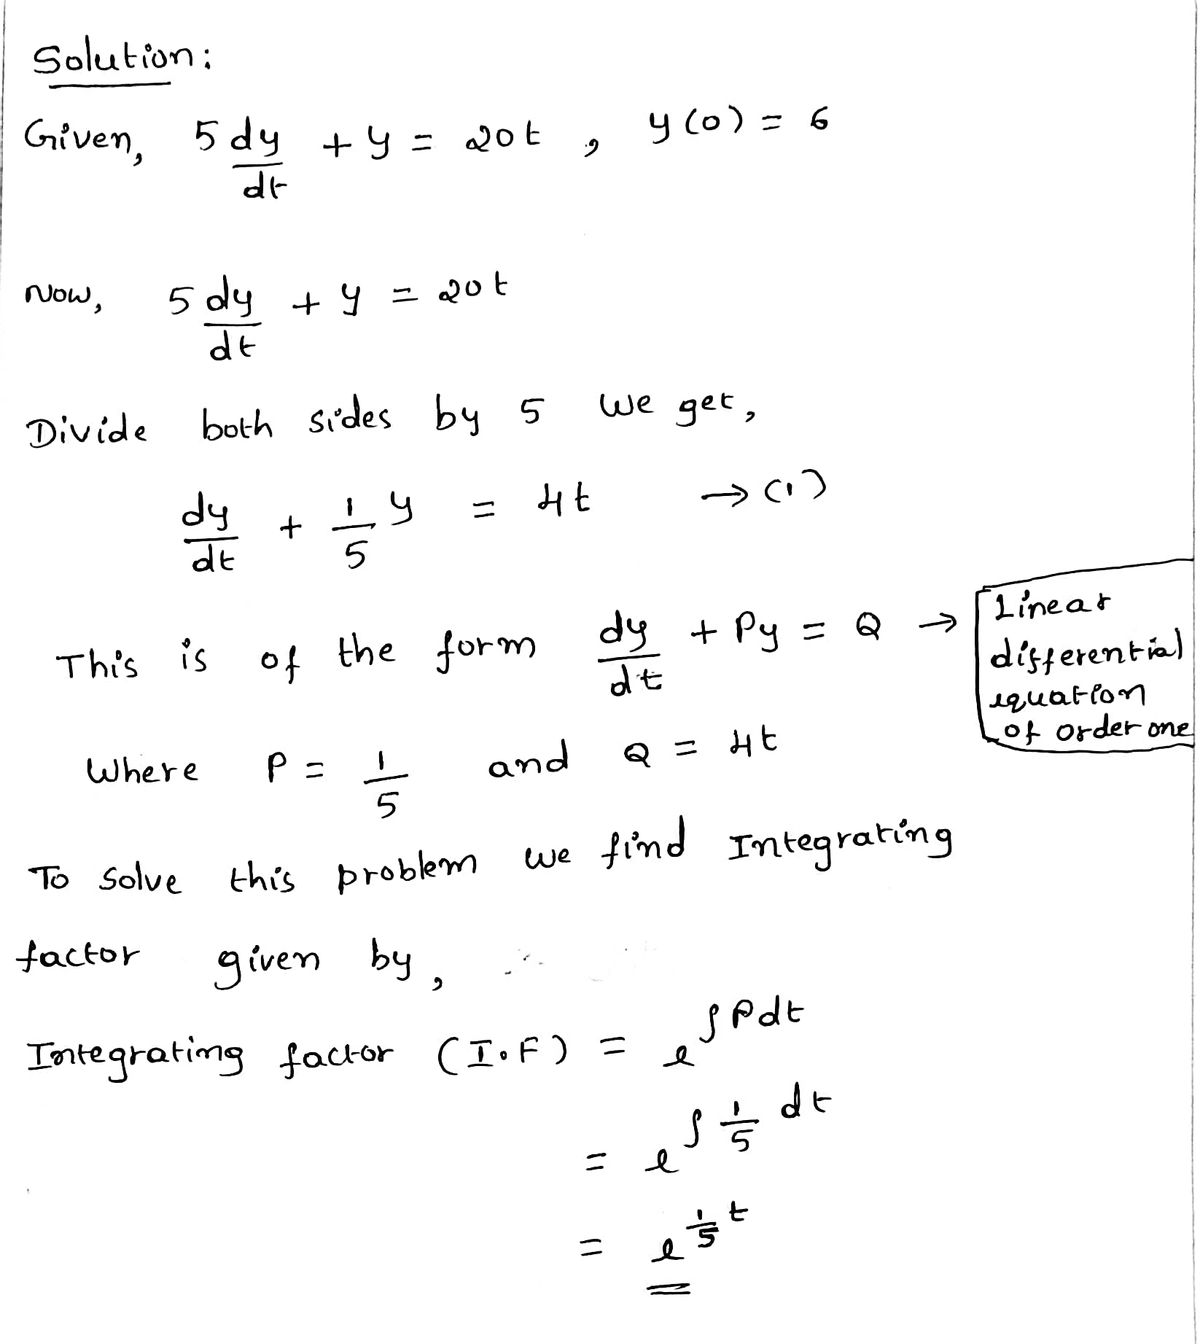 Solution:
Given, 5 dy/dt + y = 20t , y(0) = 6
Now, 5 dy/dt + y = 20t
Divide both sides by 5 we get,
dy/dt + 1/5 y = 4t → (1)
This is of the form dy/dt + Py = Q → Linear
differential
equation
of order one
Where P = 1/5 and Q = 4t
To solve this problem we find Integrating
factor given by,
Integrating factor (I.F) = e^∫Pdt
= e^∫1/5 dt
= e^1/5 t